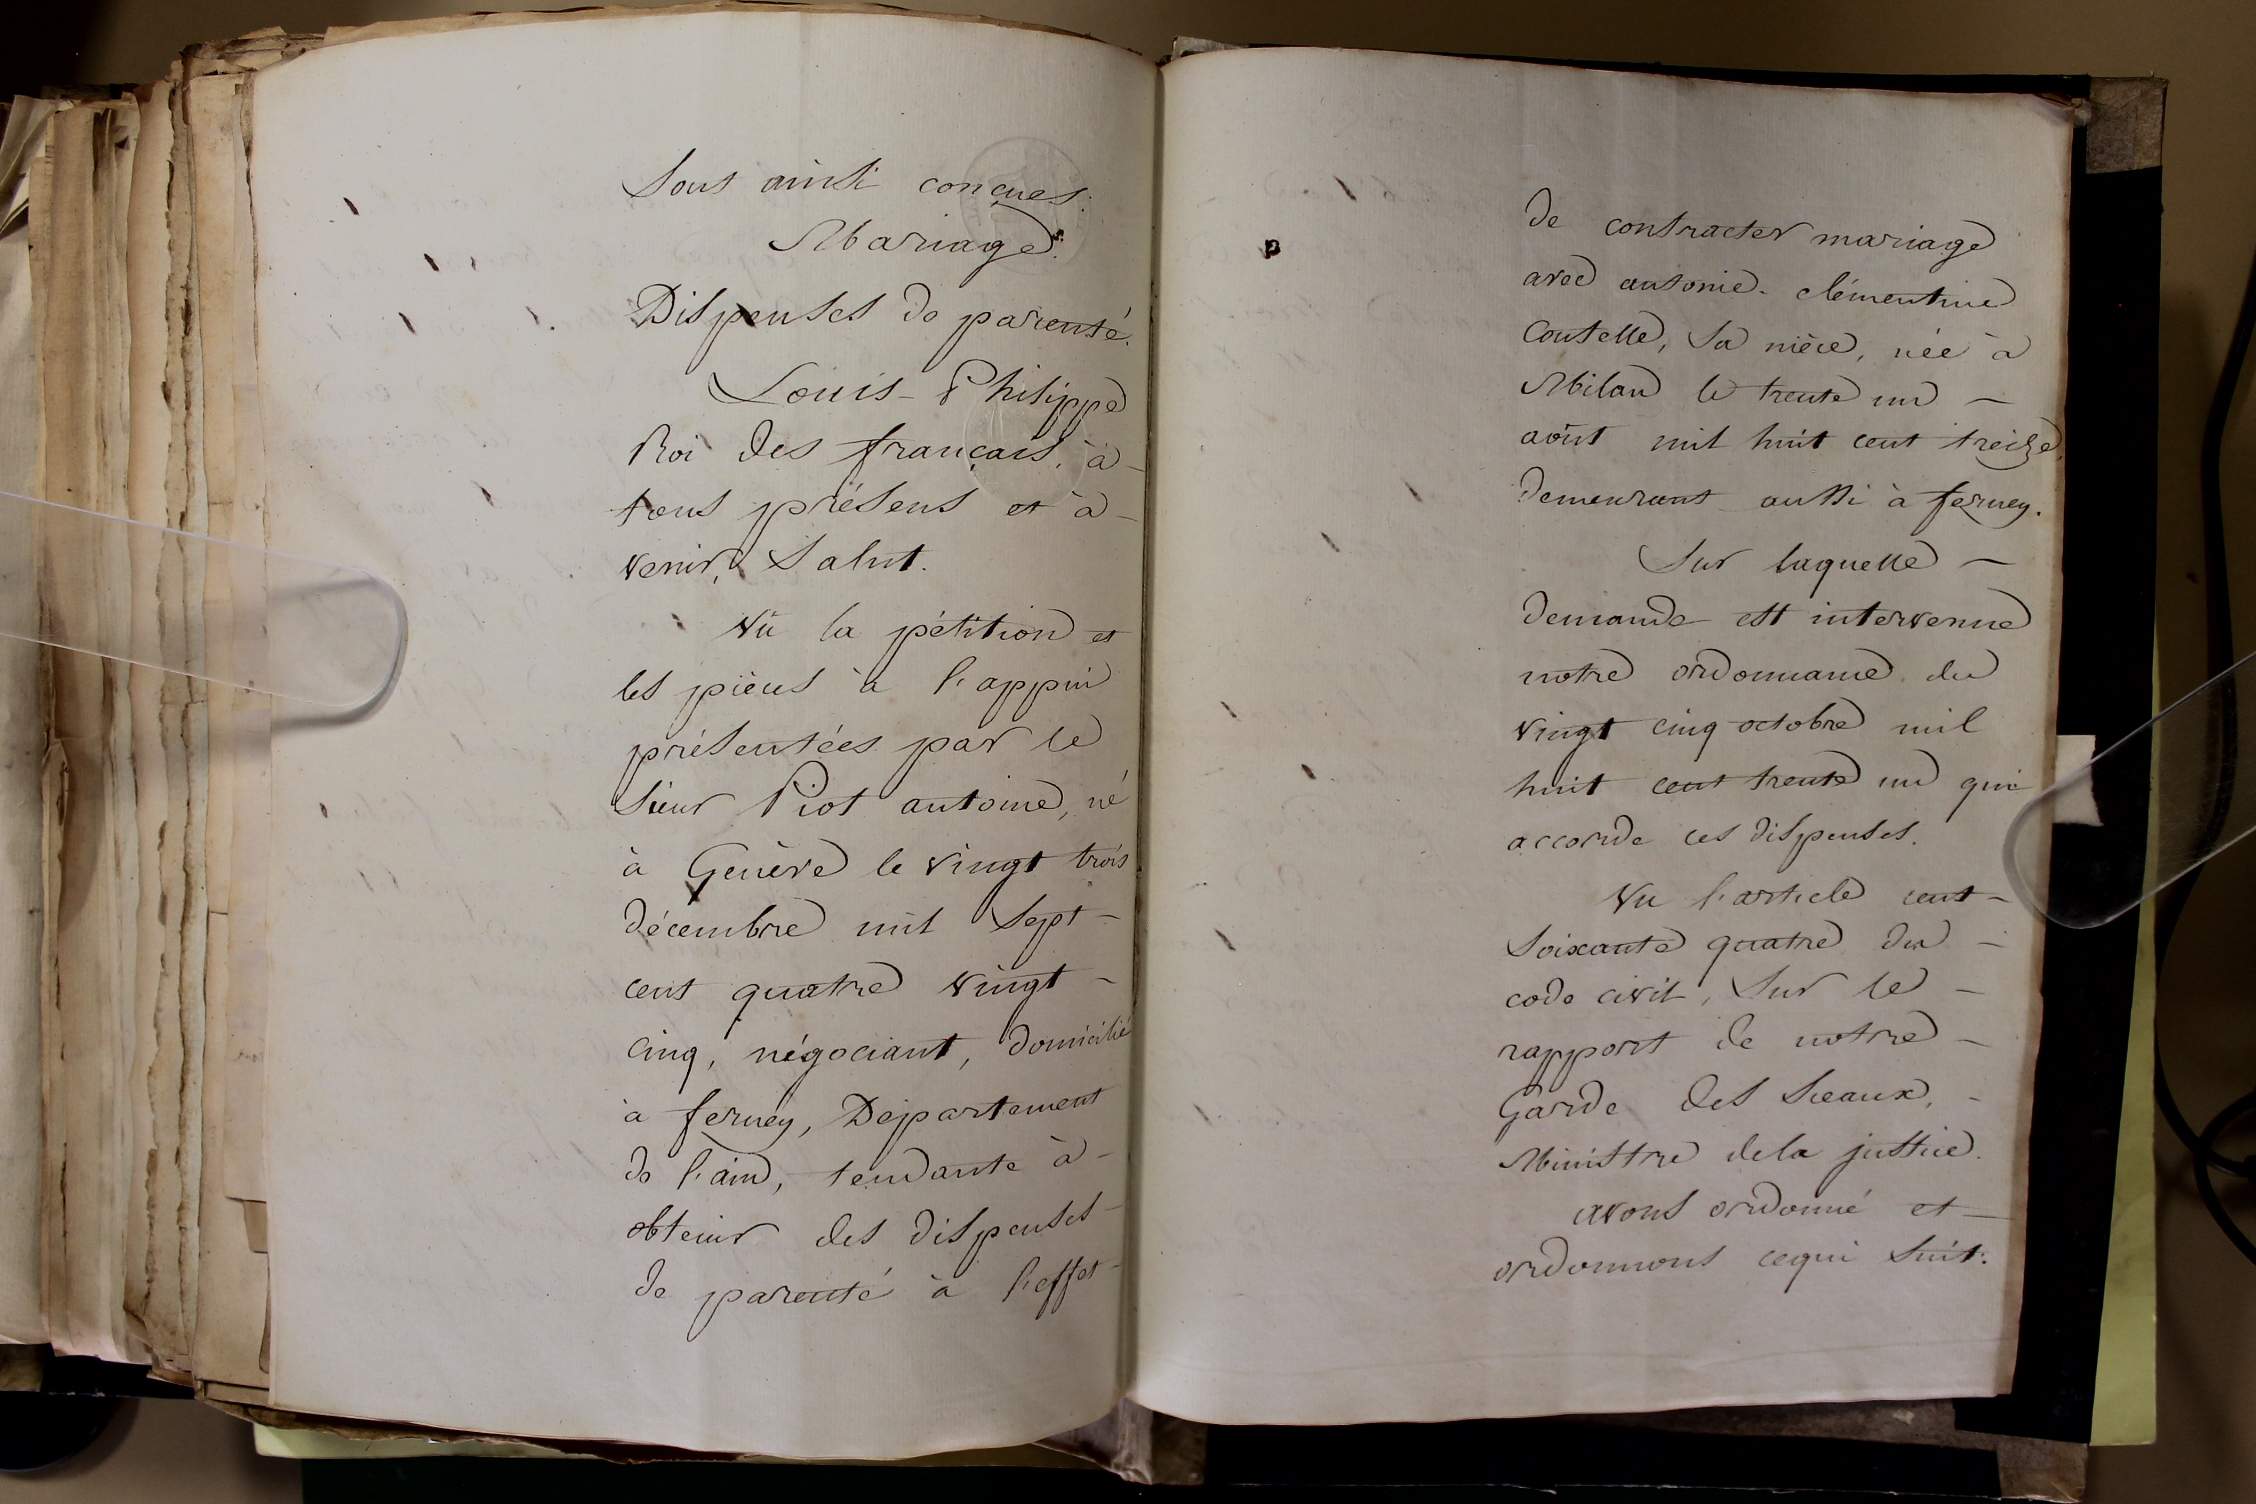 sont ainsi conçues:
Mariage.
Dispenses de parenté.
Louis-Philippe
Roi des français, à
tous présens et à
venir, Salut.
Vu la pétition et
les pièces à l'appui
présentées par le
Sieur Piot antoine, né
à Genève le vingt trois
décembre mil sept
cent quatre vingt
cinq, négociant, domicilié
à ferney, Département
de l'ain, tendante à
obtenir des dispenses
de parenté à l'effet
de contracter mariage
avec antonie-clémentine
Coutelle, sa nièce, née à
Milan le trente un
août mil huit cent treize,
demeurant aussi à ferney.
Sur laquelle
demande est intervenue
notre ordonnance du
vingt cinq octobre mil
huit cent trente un qui
accorde ces dispenses.
Vu l'article cent
soixante quatre du
code civil, Sur le
rapport de notre
Garde des Sceaux,
Ministre de la justice.
avons ordonné et
ordonnons ce qui suit: